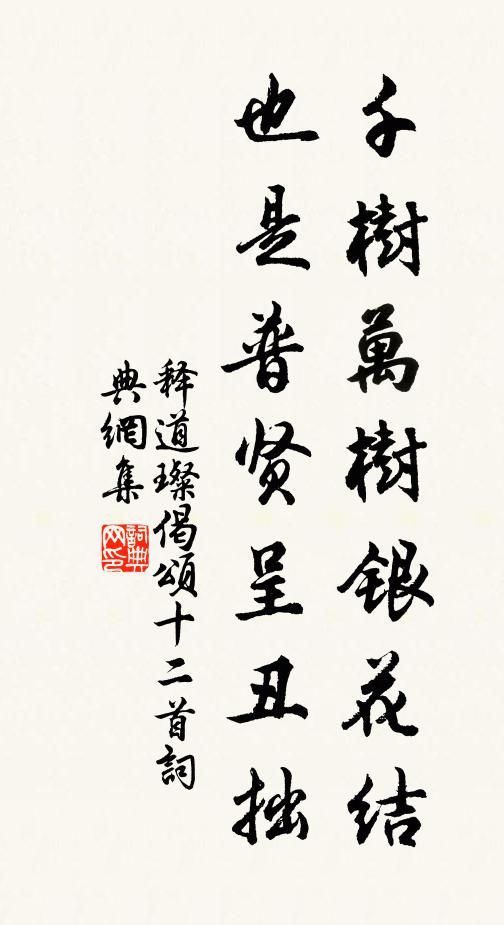 千樹萬樹銀花结
也是普贤呈丑拙
释道璨偈頌十二首詞
典網集
詞典网印